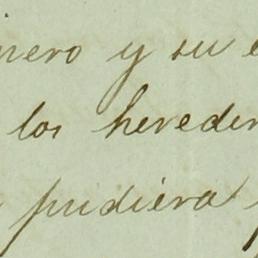 nero y su e
los hereder
pudiera